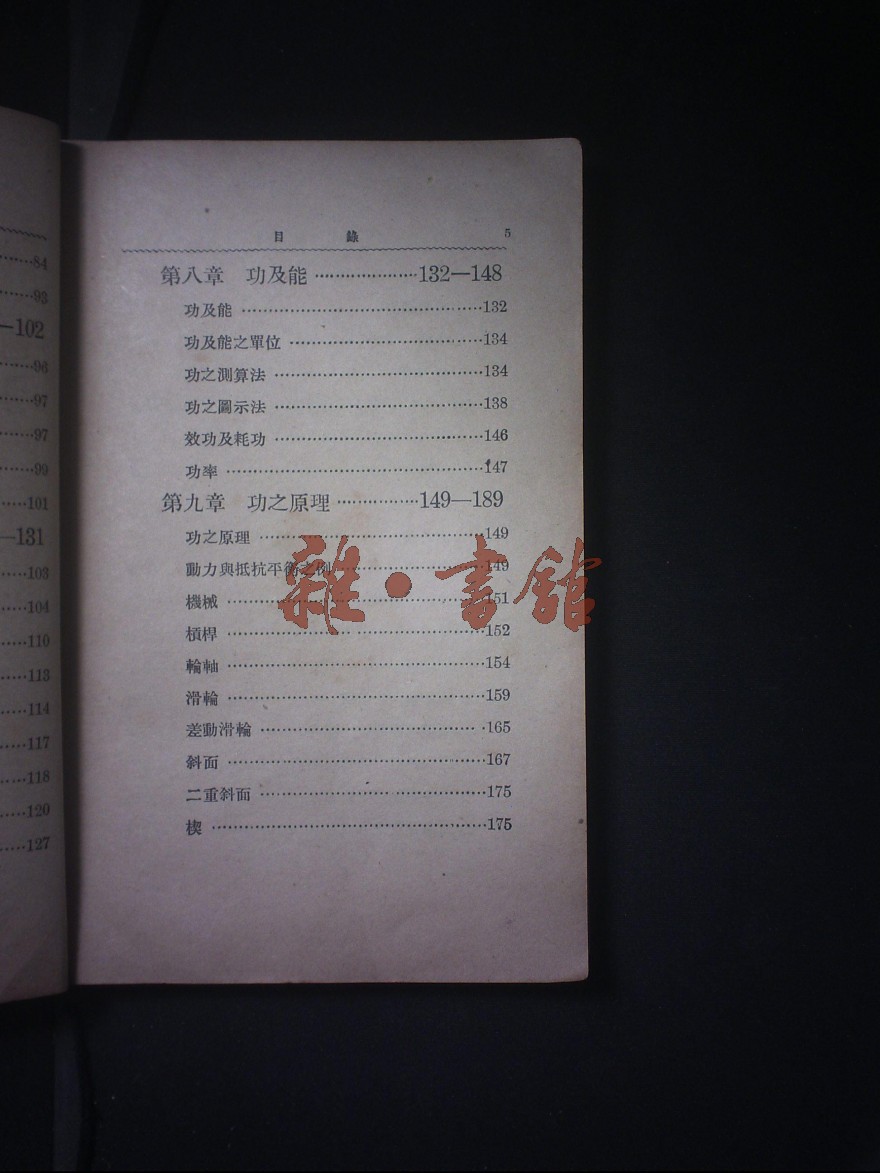 84
93
—102
96
97
97
99
101
—131
103
104
110
113
114
117
118
120
127
目 錄 5
第八章 功及能 ………………… 132—148
功及能 ………………… 132
功及能之單位 ………………… 134
功之測算法 ………………… 134
功之圖示法 ………………… 138
效功及耗功 ………………… 146
功率 ………………… 147
第九章 功之原理 ………………… 149—189
功之原理 ………………… 149
動力與抵抗平衡之例 ………………… 149
機械 ………………… 151
槓桿 ………………… 152
輪軸 ………………… 154
滑輪 ………………… 159
差動滑輪 ………………… 165
斜面 ………………… 167
二重斜面 ………………… 175
楔 ………………… 175
雜·書館